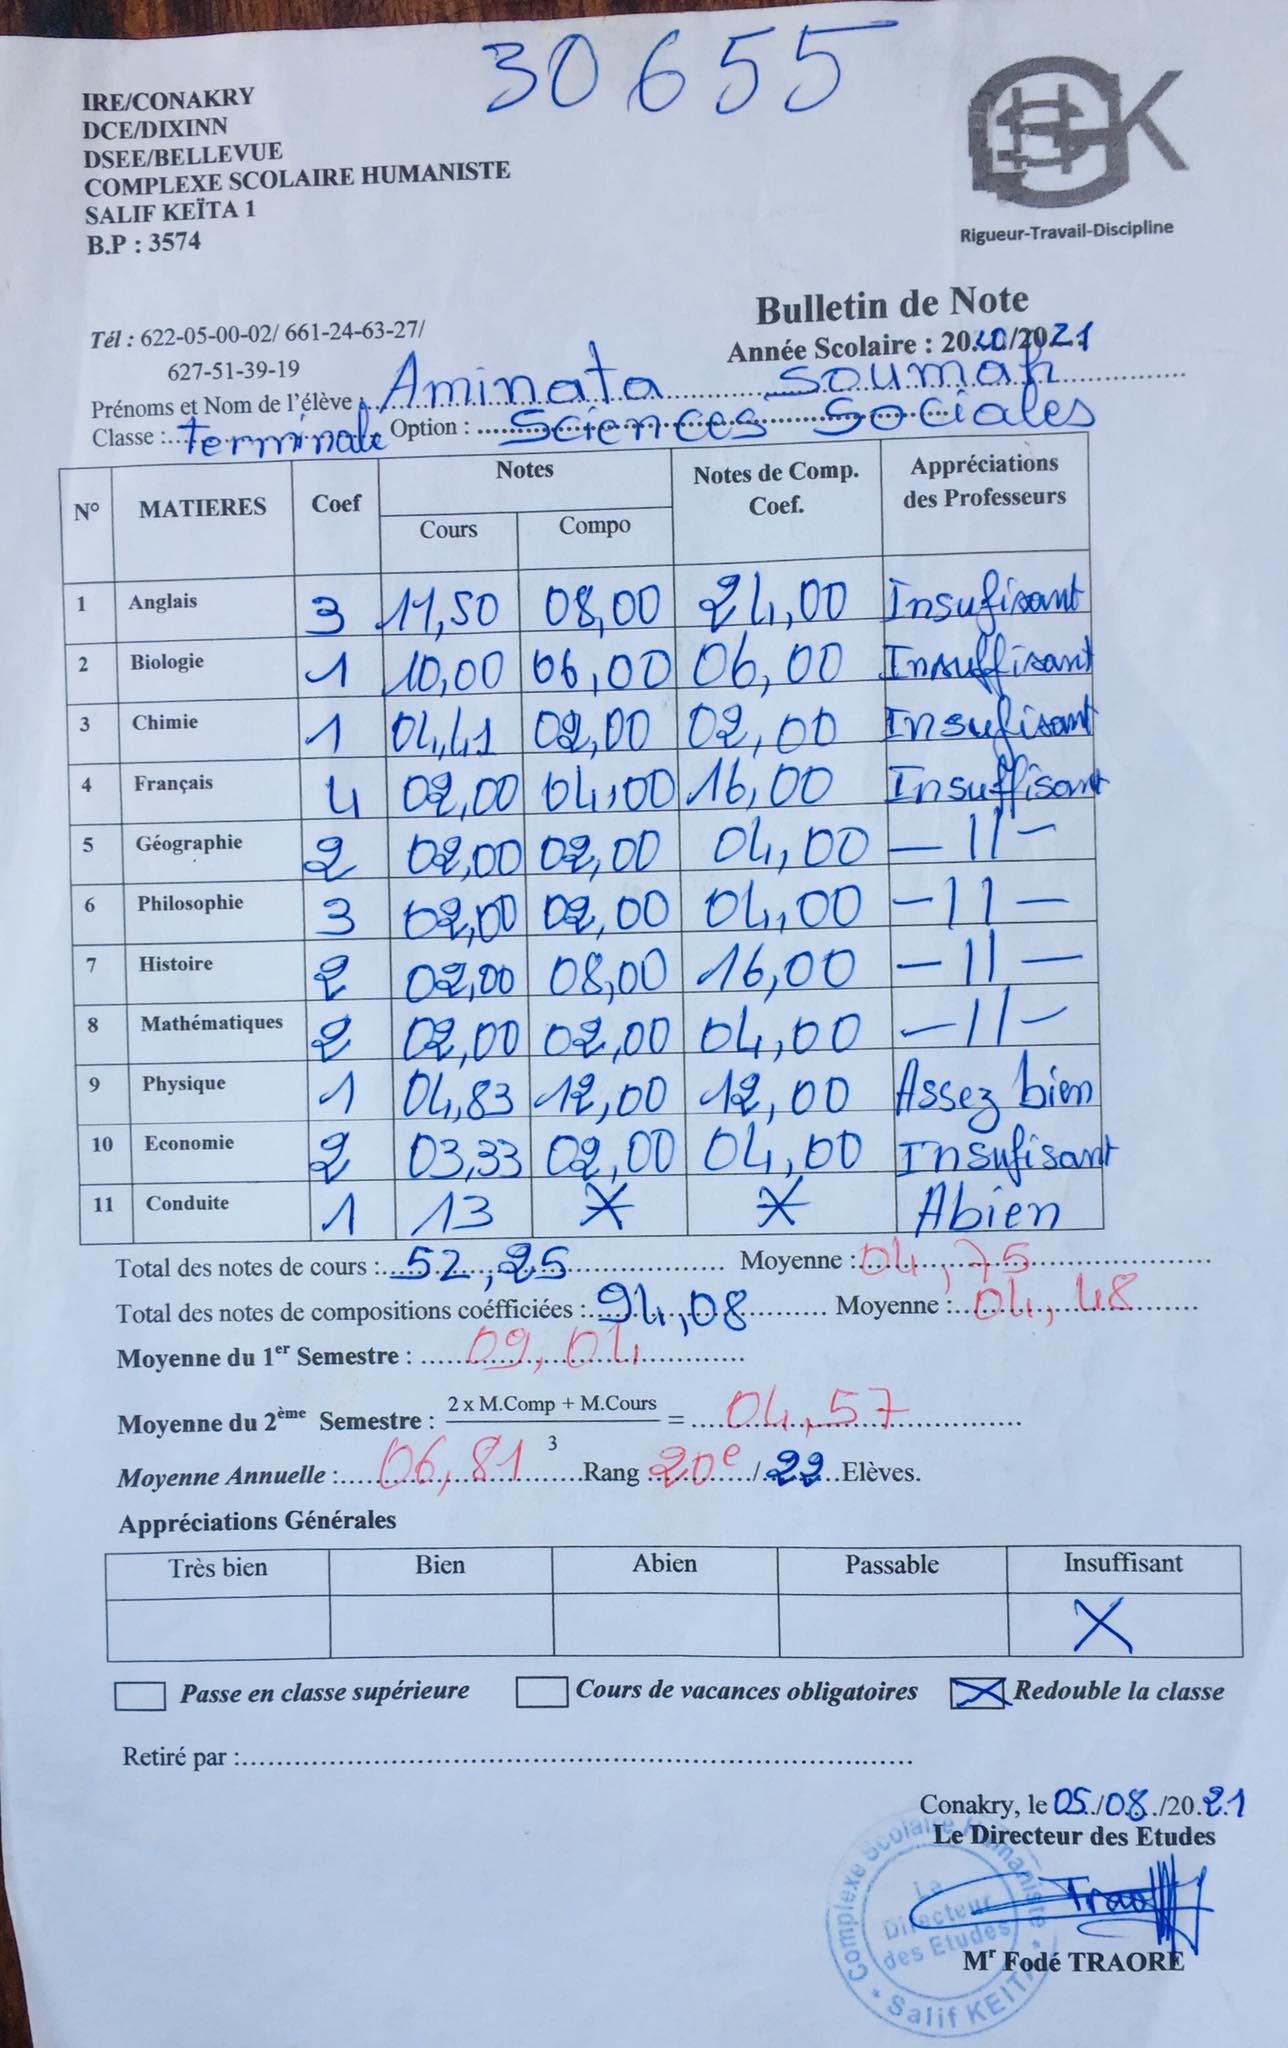 30655
IRE/CONAKRY
DCE/DIXINN
DSEE/BELLEVUE
COMPLEXE SCOLAIRE HUMANISTE
SALIF KEÏTA 1
B.P : 3574
Rigueur-Travail-Discipline
Bulletin de Note
Tél : 622-05-00-02/ 661-24-63-27/
627-51-39-19
Année Scolaire : 2020/2021
Prénoms et Nom de l'élève : Aminata Soumah
Classe : Terminale Option : Sciences Sociales
N° MATIERES Coef Notes Notes de Comp. Coef. Appréciations des Professeurs
Cours Compo
1 Anglais 3 11,50 08,00 24,00 Insufisant
2 Biologie 1 10,00 06,00 06,00 Insuffisant
3 Chimie 1 04,41 02,00 02,00 Insufisant
4 Français 4 02,00 04,00 16,00 Insuffisant
5 Géographie 2 02,00 02,00 04,00 -11-
6 Philosophie 3 02,00 02,00 04,00 -11-
7 Histoire 2 02,00 08,00 16,00 -11-
8 Mathématiques 2 02,00 02,00 04,00 -11-
9 Physique 1 04,83 12,00 12,00 Assez bien
10 Economie 2 03,33 02,00 04,00 Insufisant
11 Conduite 1 13 Abien
Total des notes de cours : 52,25 Moyenne : 04,75
Total des notes de compositions coéfficiées : 94,08 Moyenne : 04,48
Moyenne du 1er Semestre : 09,04
Moyenne du 2ème Semestre : 2 x M.Comp + M.Cours / 3 = 04,57
Moyenne Annuelle : 06,81 Rang 20e / 22 Elèves.
Appréciations Générales
Très bien Bien Abien Passable Insuffisant
X
Passe en classe supérieure Cours de vacances obligatoires Redouble la classe
Retiré par :
Conakry, le 05/08/2021
Le Directeur des Etudes
Complexe Scolaire Humaniste
Le Directeur des Etudes
Salif KEITA
Mr Fodé TRAORE